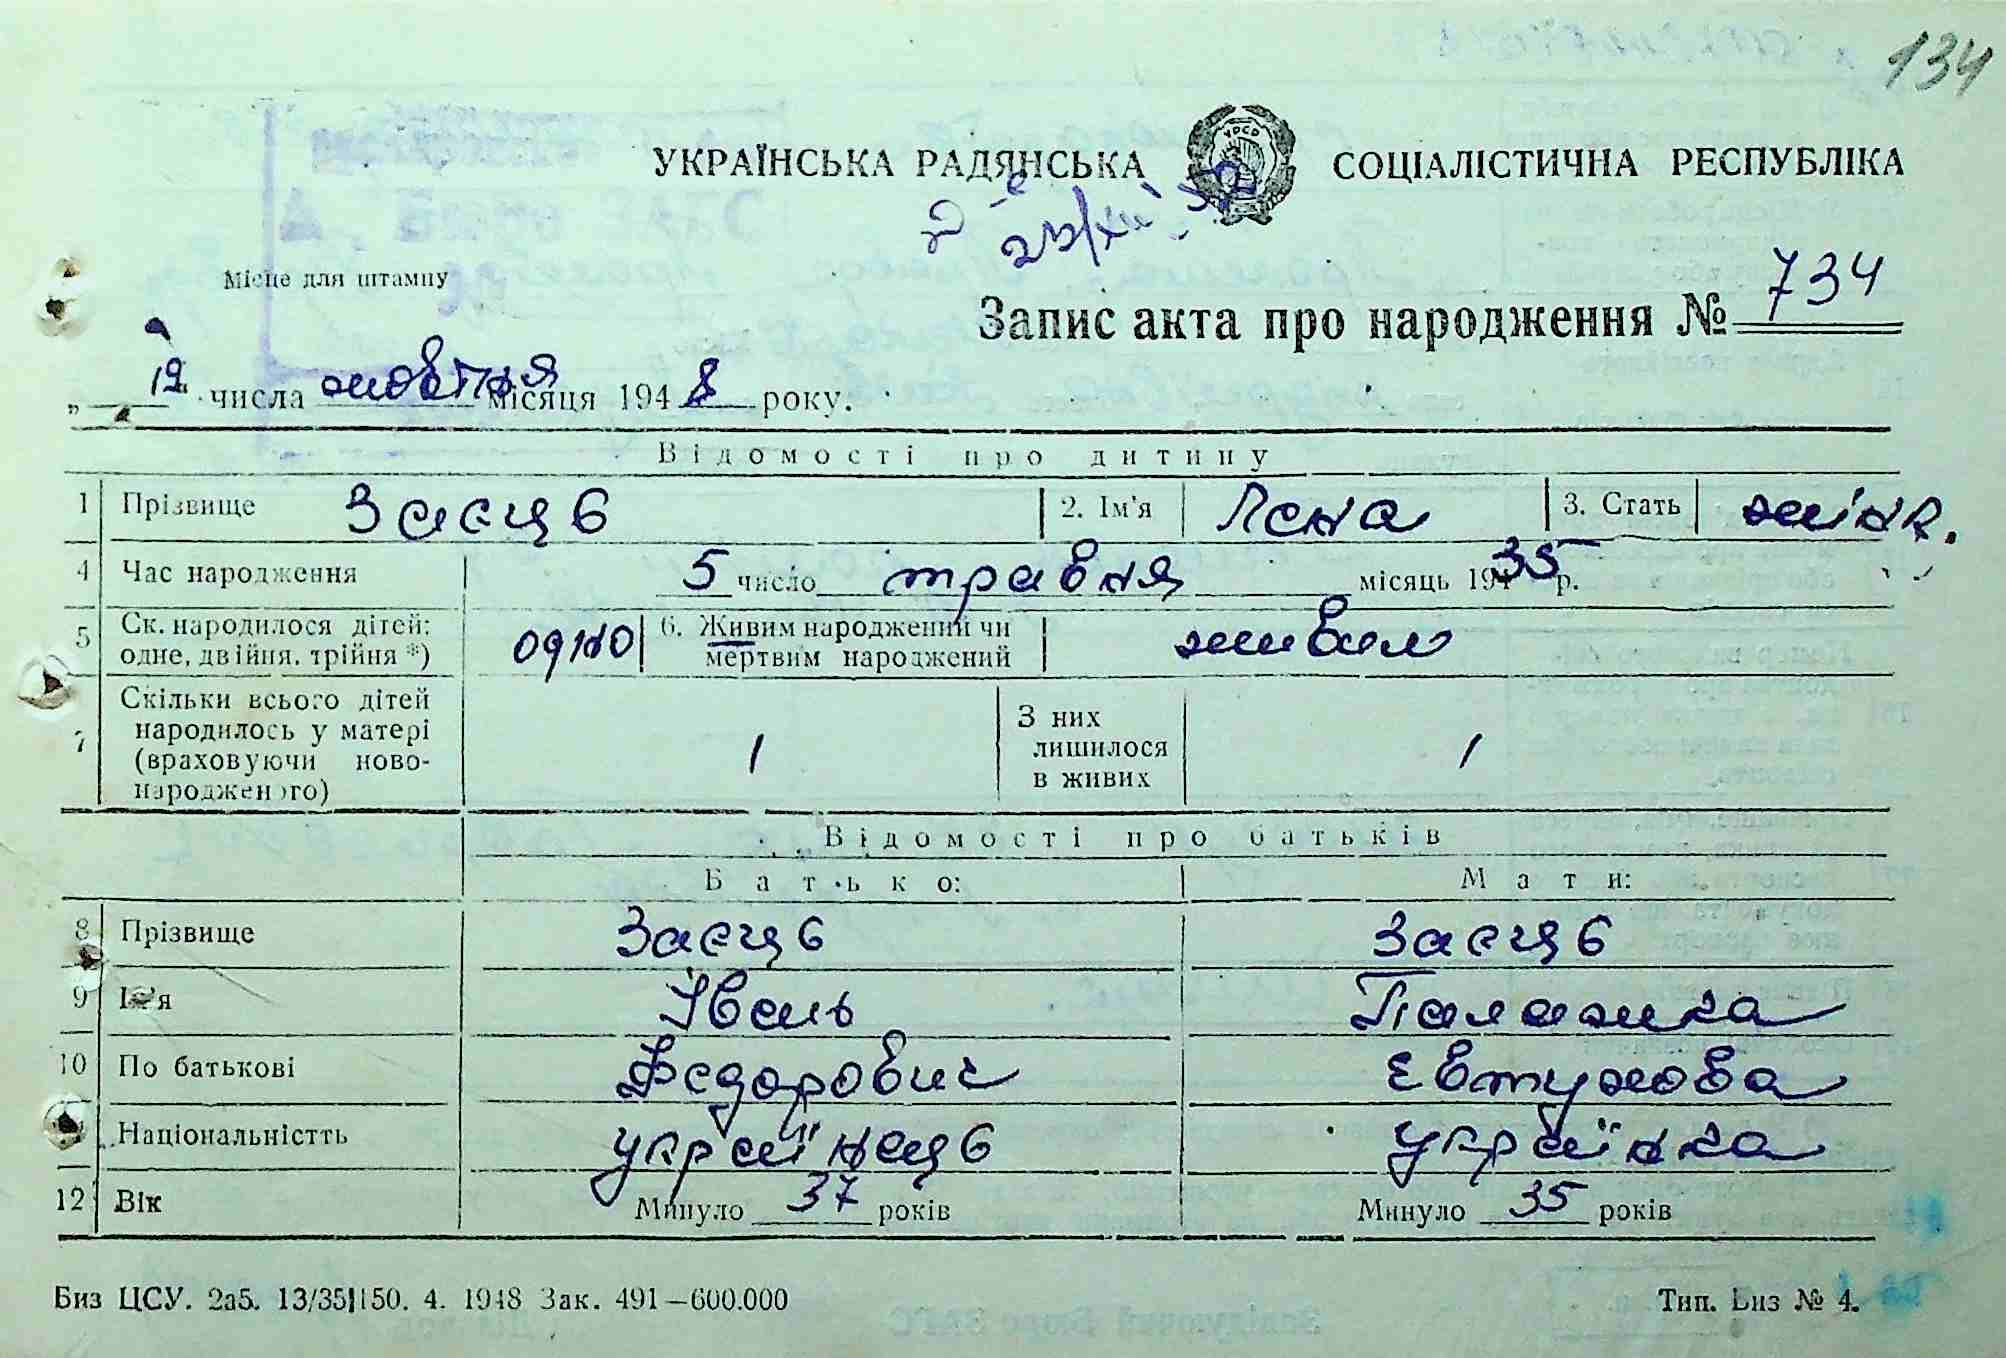 134
УКРАЇНСЬКА РАДЯНСЬКА СОЦІАЛІСТИЧНА РЕСПУБЛІКА
УРСР
Місце для штампу
Запис акта про народження № 734
„ 12 числа жовтня місяця 1948 року.
Відомості про дитину
1 Прізвище Заєць 2. Ім'я Лєна 3. Стать жін.
4 Час народження 5 число травня місяць 1935 р.
5 Ск. народилося дітей: одне, двійня, трійня *) одно 6. Живим народжений чи мертвим народжений живим
7 Скільки всього дітей народилось у матері (враховуючи новонародженого) 1 З них лишилося в живих 1
Відомості про батьків
Батько: Мати:
8 Прізвище Заєць Заєць
9 Ім'я Івань Палажка
10 По батькові Федорович Євтухова
Національністть украінець українка
12 Вік Минуло 37 років Минуло 35 років
Биз ЦСУ. 2а5. 13/35|150. 4. 1948 Зак. 491—600.000 Тип. Биз № 4.